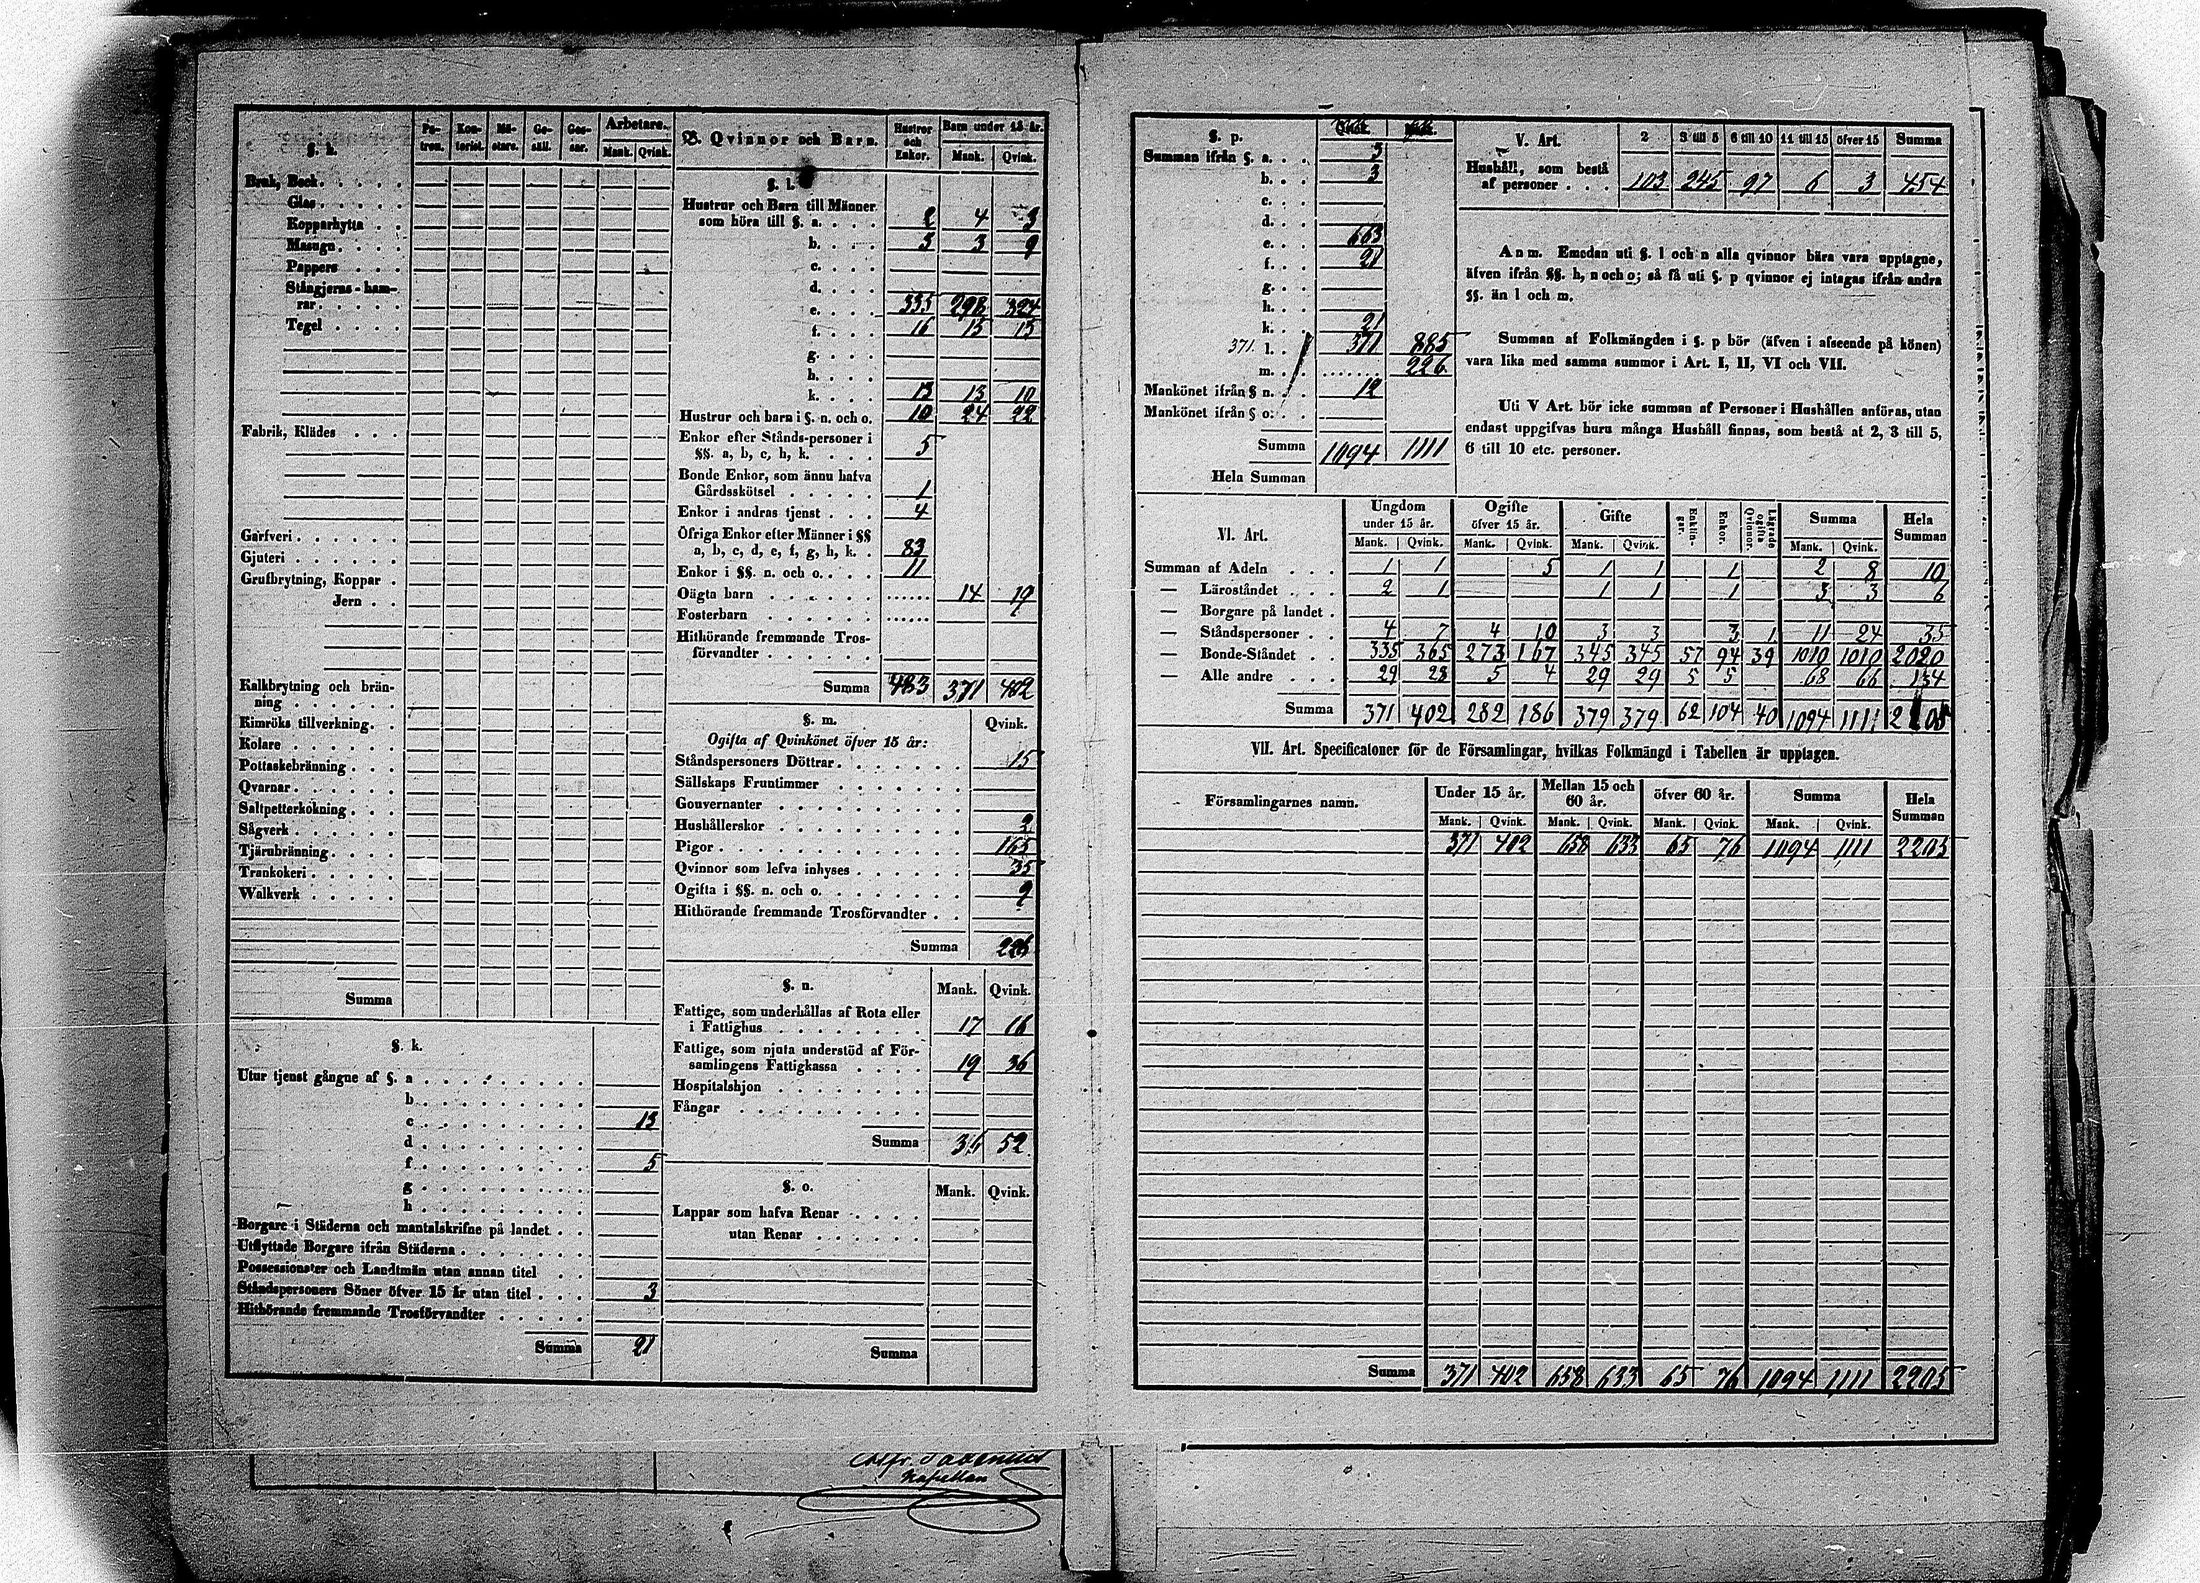 §. h. Pa-tron. Kon-torist. Mä-stare. Ge-säll. Gos-sar. Arbetare. Mank. Qvink.
Bruk, Beck
Glas
Kopparhytta
Masugn
Pappers
Stångjerns-ham-
rar
Tegel
Fabrik, Klädes
Garfveri
Gjuteri
Grufbrytning, Koppar
Jern
Kalkbrytning och brän-
ning
Kimröks tillverkning
Kolare
Pottaskebränning
Qvarnar
Saltpetterkokning
Sågverk
Tjärubränning
Trankokeri
Walkverk
Summa
§. k.
Utur tjenst gångne af §. a
b
c 13
d
f 5
g
h
Borgare i Städerna och mantalskrifne på landet
Utflyttade Borgare ifrån Städerna
Possessionater och Landtmän utan annan titel
Ståndspersoners Söner öfver 15 år utan titel 3
Hithörande fremmande Trosförvandter
Summa 21
B. Qvinnor och Barn. Hustrur och Enkor. Barn under 15 år. Mank. Qvink.
§. l.
Hustrur och Barn till Männer
som höra till §. a. 2 4 3
b. 3 3 9
c.
d.
e. 335 298 324
f. 16 15 15
g.
h.
k. 13 13 10
Hustrur och barn i §. n. och o. 10 24 22
Enkor efter Stånds-personer i
§§. a, b, c, h, k. 5
Bonde Enkor, som ännu hafva
Gårdsskötsel 1
Enkor i andras tjenst 4
Öfriga Enkor efter Männer i §§
a, b, c, d, e, f, g, h, k. 83
Enkor i §§. n. och o. 11
Oägta barn 14 19
Fosterbarn
Hithörande fremmande Tros-
förvandter
Summa 483 371 402
§. m. Qvink.
Ogifta af Qvinkönet öfver 15 år:
Ståndspersoners Döttrar 15
Sällskaps Fruntimmer
Gouvernanter
Hushållerskor 2
Pigor 165
Qvinnor som lefva inhyses 35
Ogifta i §§. n. och o. 9
Hithörande fremmande Trosförvandter
Summa 226
§. n. Mank. Qvink.
Fattige, som underhållas af Rota eller
i Fattighus 17 16
Fattige, som njuta understöd af För-
samlingens Fattigkassa 19 36
Hospitalshjon
Fångar
Summa 36 52
§. o. Mank. Qvink.
Lappar som hafva Renar
utan Renar
Summa
Kapellan
§. p.
Summan ifrån §. a. 3
b. 3
c.
d.
e. 663
f. 21
g.
h.
k. 21
371. l. 371 885
m. 226
Mankönet ifrån § n. 12
Mankönet ifrån § o.
Summa 1094 1111
Hela Summan
V. Art. 2 3 till 5 6 till 10 11 till 15 öfver 15 Summa
Hushåll, som bestå
af personer 103 245 97 6 3 454
Anm. Emedan uti §. l och n alla qvinnor böra vara upptagne,
äfven ifrån §§. h, n och o; så få uti §. p qvinnor ej intagas ifrån andra
§§. än l och m.
Summan af Folkmängden i §. p bör (äfven i afseende på könen)
vara lika med samma summor i Art. I, II, VI och VII.
Uti V Art. bör icke summan af Personer i Hushållen anföras, utan
endast uppgifvas huru många Hushåll finnas, som bestå af 2, 3 till 5,
6 till 10 etc. personer.
VI. Art. Ungdom under 15 år. Ogifte öfver 15 år. Gifte Enklin-gar. Enkor. Lägrade ogifta Qvinnor. Summa Hela Summan
Mank. Qvink. Mank. Qvink. Mank. Qvink. Mank. Qvink.
Summan af Adeln 1 1 5 1 1 1 2 8 10
— Läroståndet 2 1 1 1 1 3 3 6
— Borgare på landet
— Ståndspersoner 4 7 4 10 3 3 3 1 11 24 35
— Bonde-Ståndet 335 365 273 167 345 345 57 94 39 1010 1010 2020
— Alle andre 29 28 5 4 29 29 5 5 68 66 134
Summa 371 402 282 186 379 379 62 104 40 1094 1111 2205
VII. Art. Specificationer för de Församlingar, hvilkas Folkmängd i Tabellen är upptagen.
Församlingarnes namn. Under 15 år. Mellan 15 och 60 år. öfver 60 år. Summa Hela Summan
Mank. Qvink. Mank. Qvink. Mank. Qvink. Mank. Qvink.
371 402 658 633 65 76 1094 1111 2205
Summa 371 402 658 633 65 76 1094 1111 2205